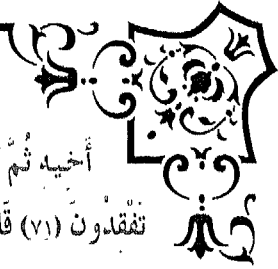 أَخِيهِ ثُمَّ
تَفْقِدُونَ (٧١) قَا